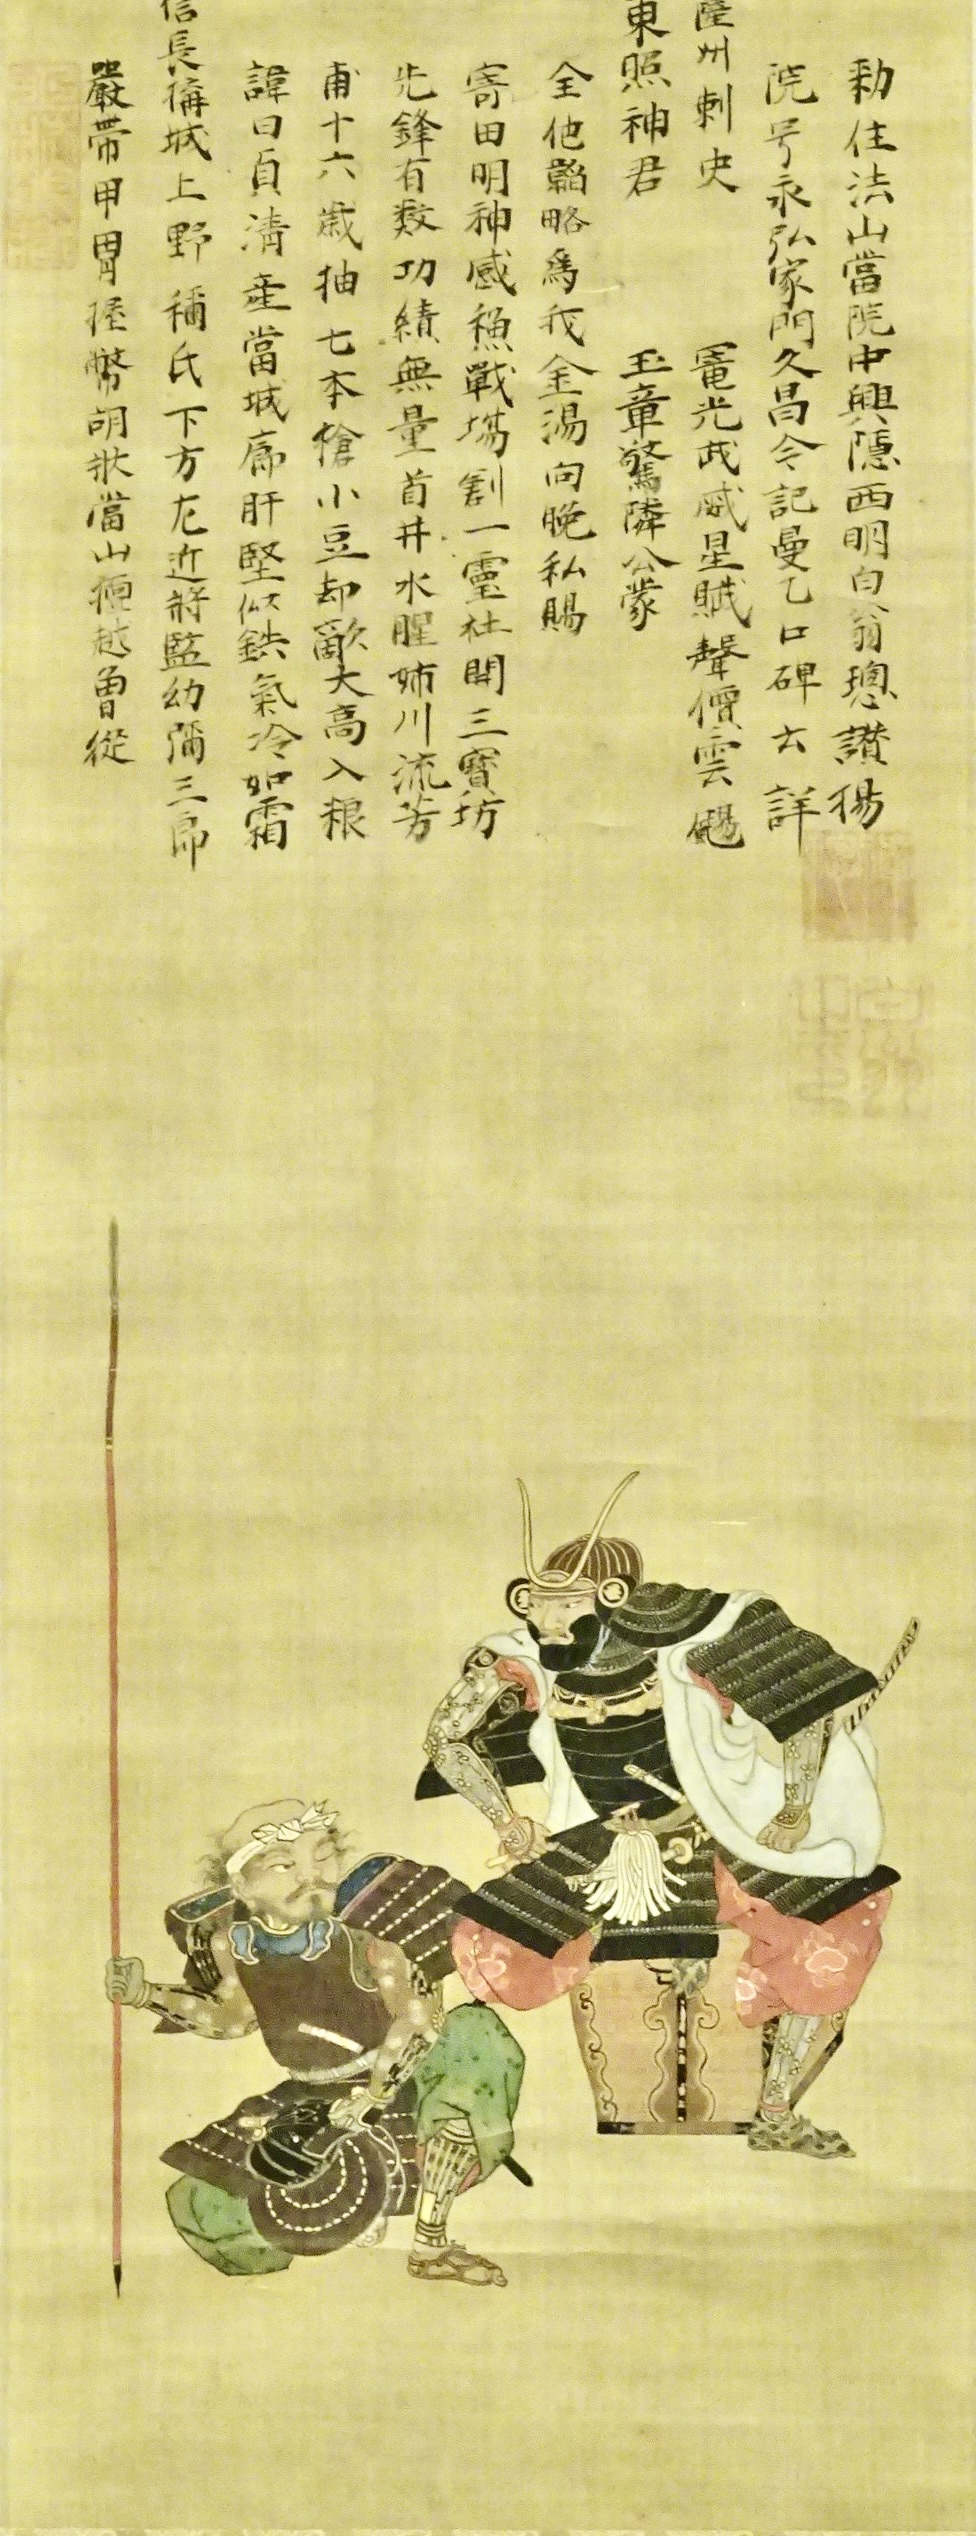 嚴帶甲冑握幣胡狀當山檀越曾從
信長稱城上野稱氏下方左近將監幼彌三郎
諱曰貞清産當城廓肝堅似鉄氣冷如霜
甫十六歳抽七本槍小豆却敵大高入粮
先鋒有数功績無量首井水腥姉川流芳
寄田明神感殞戰場割一靈社開三寶坊
全他韜略爲我金湯向晩私賜
東照神君 玉章驚隣公蒙
薩州刺史 寵光武威星賊聲價雲颺
院号永弘家門久昌今記曼乙口碑云詳
勅住法山當院中興隱西明白翁璁讃揚